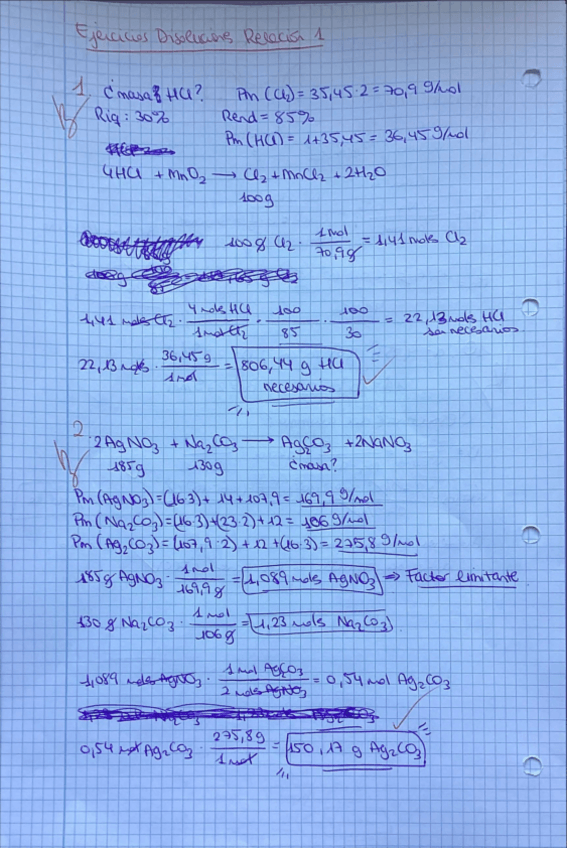 Ejercicios Disoluciones Relación 1
1. ¿masa HCl? Pm (Cl₂) = 35,45·2 = 70,9 g/mol
Riq: 30% Rend = 85%
Pm (HCl) = 1+35,45 = 36,45 g/mol
4HCl + MnO₂ → Cl₂ + MnCl₂ + 2H₂O
100g
100 g Cl₂ · 1mol / 70,9g = 1,41 moles Cl₂
1,41 moles Cl₂ · 4 moles HCl / 1 mol Cl₂ · 100 / 85 · 100 / 30 = 22,13 moles HCl
son necesarios
22,13 moles · 36,45g / 1mol = 806,44 g HCl
necesarios
2. 2AgNO₃ + Na₂CO₃ → Ag₂CO₃ + 2NaNO₃
185g 130g ¿masa?
Pm (AgNO₃) = (16·3) + 14 + 107,9 = 169,9 g/mol
Pm (Na₂CO₃) = (16·3) + (23·2) + 12 = 106 g/mol
Pm (Ag₂CO₃) = (107,9·2) + 12 + (16·3) = 275,8 g/mol
185g AgNO₃ · 1mol / 169,9g = 1,089 moles AgNO₃ ⇒ Factor limitante
130 g Na₂CO₃ · 1mol / 106g = 1,23 moles Na₂CO₃
1,089 moles AgNO₃ · 1 mol Ag₂CO₃ / 2 moles AgNO₃ = 0,54 mol Ag₂CO₃
0,54 mol Ag₂CO₃ · 275,8g / 1 mol = 150,17 g Ag₂CO₃